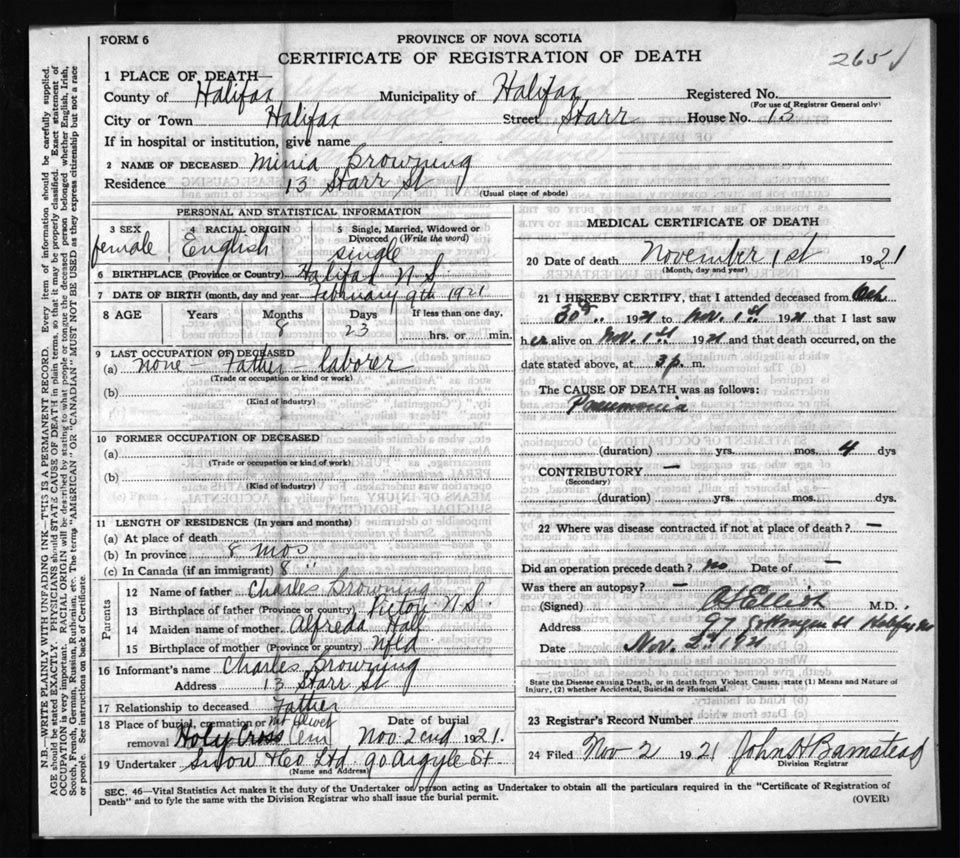 FORM 6
PROVINCE OF NOVA SCOTIA
CERTIFICATE OF REGISTRATION OF DEATH
265
1 PLACE OF DEATH—
County of Halifax Municipality of Halifax Registered No.
(For use of Registrar General only)
City or Town Halifax Street Starr House No. 13
If in hospital or institution, give name
2 NAME OF DECEASED Minia Browning
Residence 13 Starr St
(Usual place of abode)
PERSONAL AND STATISTICAL INFORMATION
3 SEX 4 RACIAL ORIGIN 5 Single, Married, Widowed or Divorced (Write the word)
female English single
6 BIRTHPLACE (Province or Country) Halifax N S
7 DATE OF BIRTH (month, day and year February 9th 1921
8 AGE Years Months Days If less than one day,
8 23 hrs. or min.
9 LAST OCCUPATION OF DECEASED
(a) none - Father - laborer
(Trade or occupation or kind of work)
(b)
(Kind of industry)
10 FORMER OCCUPATION OF DECEASED
(a)
(Trade or occupation or kind of work)
(b)
(Kind of industry)
11 LENGTH OF RESIDENCE (In years and months)
(a) At place of death
(b) In province 8 mos
(c) In Canada (if an immigrant) 8 "
Parents
12 Name of father Charles Browning
13 Birthplace of father (Province or country) Pictou N S
14 Maiden name of mother Alfreda Hall
15 Birthplace of mother (Province or country) Nfld
16 Informant's name Charles Browning
Address 13 Starr St
17 Relationship to deceased Father
18 Place of burial, cremation or removal Mt Olivet Holy Cross Cem Date of burial Nov 2nd 1921.
19 Undertaker Snow & Co Ltd. 90 Argyle St
(Name and Address)
MEDICAL CERTIFICATE OF DEATH
20 Date of death November 1st 1921
(Month, day and year)
21 I HEREBY CERTIFY, that I attended deceased from Oct
30th 1921 to Nov. 1st 1921 that I last saw
her alive on Nov. 1st 1921 and that death occurred, on the
date stated above, at 3 p. m.
The CAUSE OF DEATH was as follows:
Pneumonia
(duration) yrs. mos. 4 dys
CONTRIBUTORY —
(Secondary)
(duration) yrs. mos. dys.
22 Where was disease contracted if not at place of death? —
Did an operation precede death? no Date of —
Was there an autopsy? —
(Signed) Elliot M.D.
Address 97 Halifax
Date Nov. 2nd 1921
State the Disease causing Death, or in death from Violent Causes, state (1) Means and Nature of
Injury, (2) whether Accidental, Suicidal or Homicidal.
23 Registrar's Record Number
24 Filed Nov 2 1921 John H Barnstead
Division Registrar
SEC. 46—Vital Statistics Act makes it the duty of the Undertaker or person acting as Undertaker to obtain all the particulars required in the "Certificate of Registration of
Death" and to fyle the same with the Division Registrar who shall issue the burial permit.
(OVER)
N.B.—WRITE PLAINLY WITH UNFADING INK—THIS IS A PERMANENT RECORD. Every item of information should be carefully supplied.
AGE should be stated EXACTLY. PHYSICIANS should STATE CAUSE OF DEATH in plain terms, so that it may be properly classified. Exact statement of
OCCUPATION is very important. RACIAL ORIGIN will be described by stating to what people or tongue the deceased person belonged whether English, Irish,
Scotch, French, German, Russian, Ruthenian, etc. The terms "AMERICAN" OR "CANADIAN" MUST NOT BE USED as they express citizenship but not a race
or people. See instructions on back of Certificate.